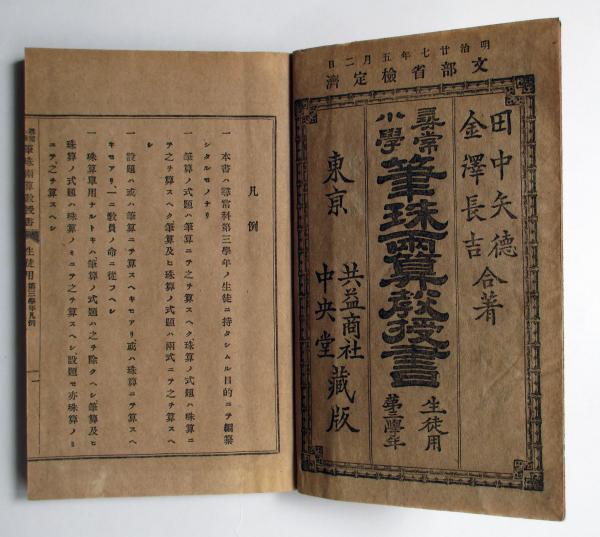 明治廿七年五月二日
文部省檢定濟
田中矢德
金澤長吉
合著
尋常
小學
筆珠兩算敎授書
生徒用
第三學年
東京
共益商社
中央堂
藏版
凡例
一 本書ハ尋常科第三學年ノ生徒ニ持タシムル目的ニテ編纂
シタルモノナリ
一 筆算ノ式題ハ筆算ニテ之ヲ算スヘク珠算ノ式題ハ珠算ニ
テ之ヲ算スヘク筆算及ヒ珠算ノ式題ハ兩式ニテ之ヲ算スヘ
シ
一 設題ハ或ハ筆算ニテ算スヘキモアリ或ハ珠算ニテ算スヘ
キモアリ、一ニ敎員ノ命ニ從フヘシ
一 珠算單用ナルトキハ筆算ノ式題ハ之ヲ除クヘシ筆算及ヒ
珠算ノ式題ハ珠算ノミニテ之ヲ算スヘシ、設題モ亦珠算ノミ
ニテ之ヲ算スヘシ
筆珠兩算敎授書
生徒用
第三學年凡例
一